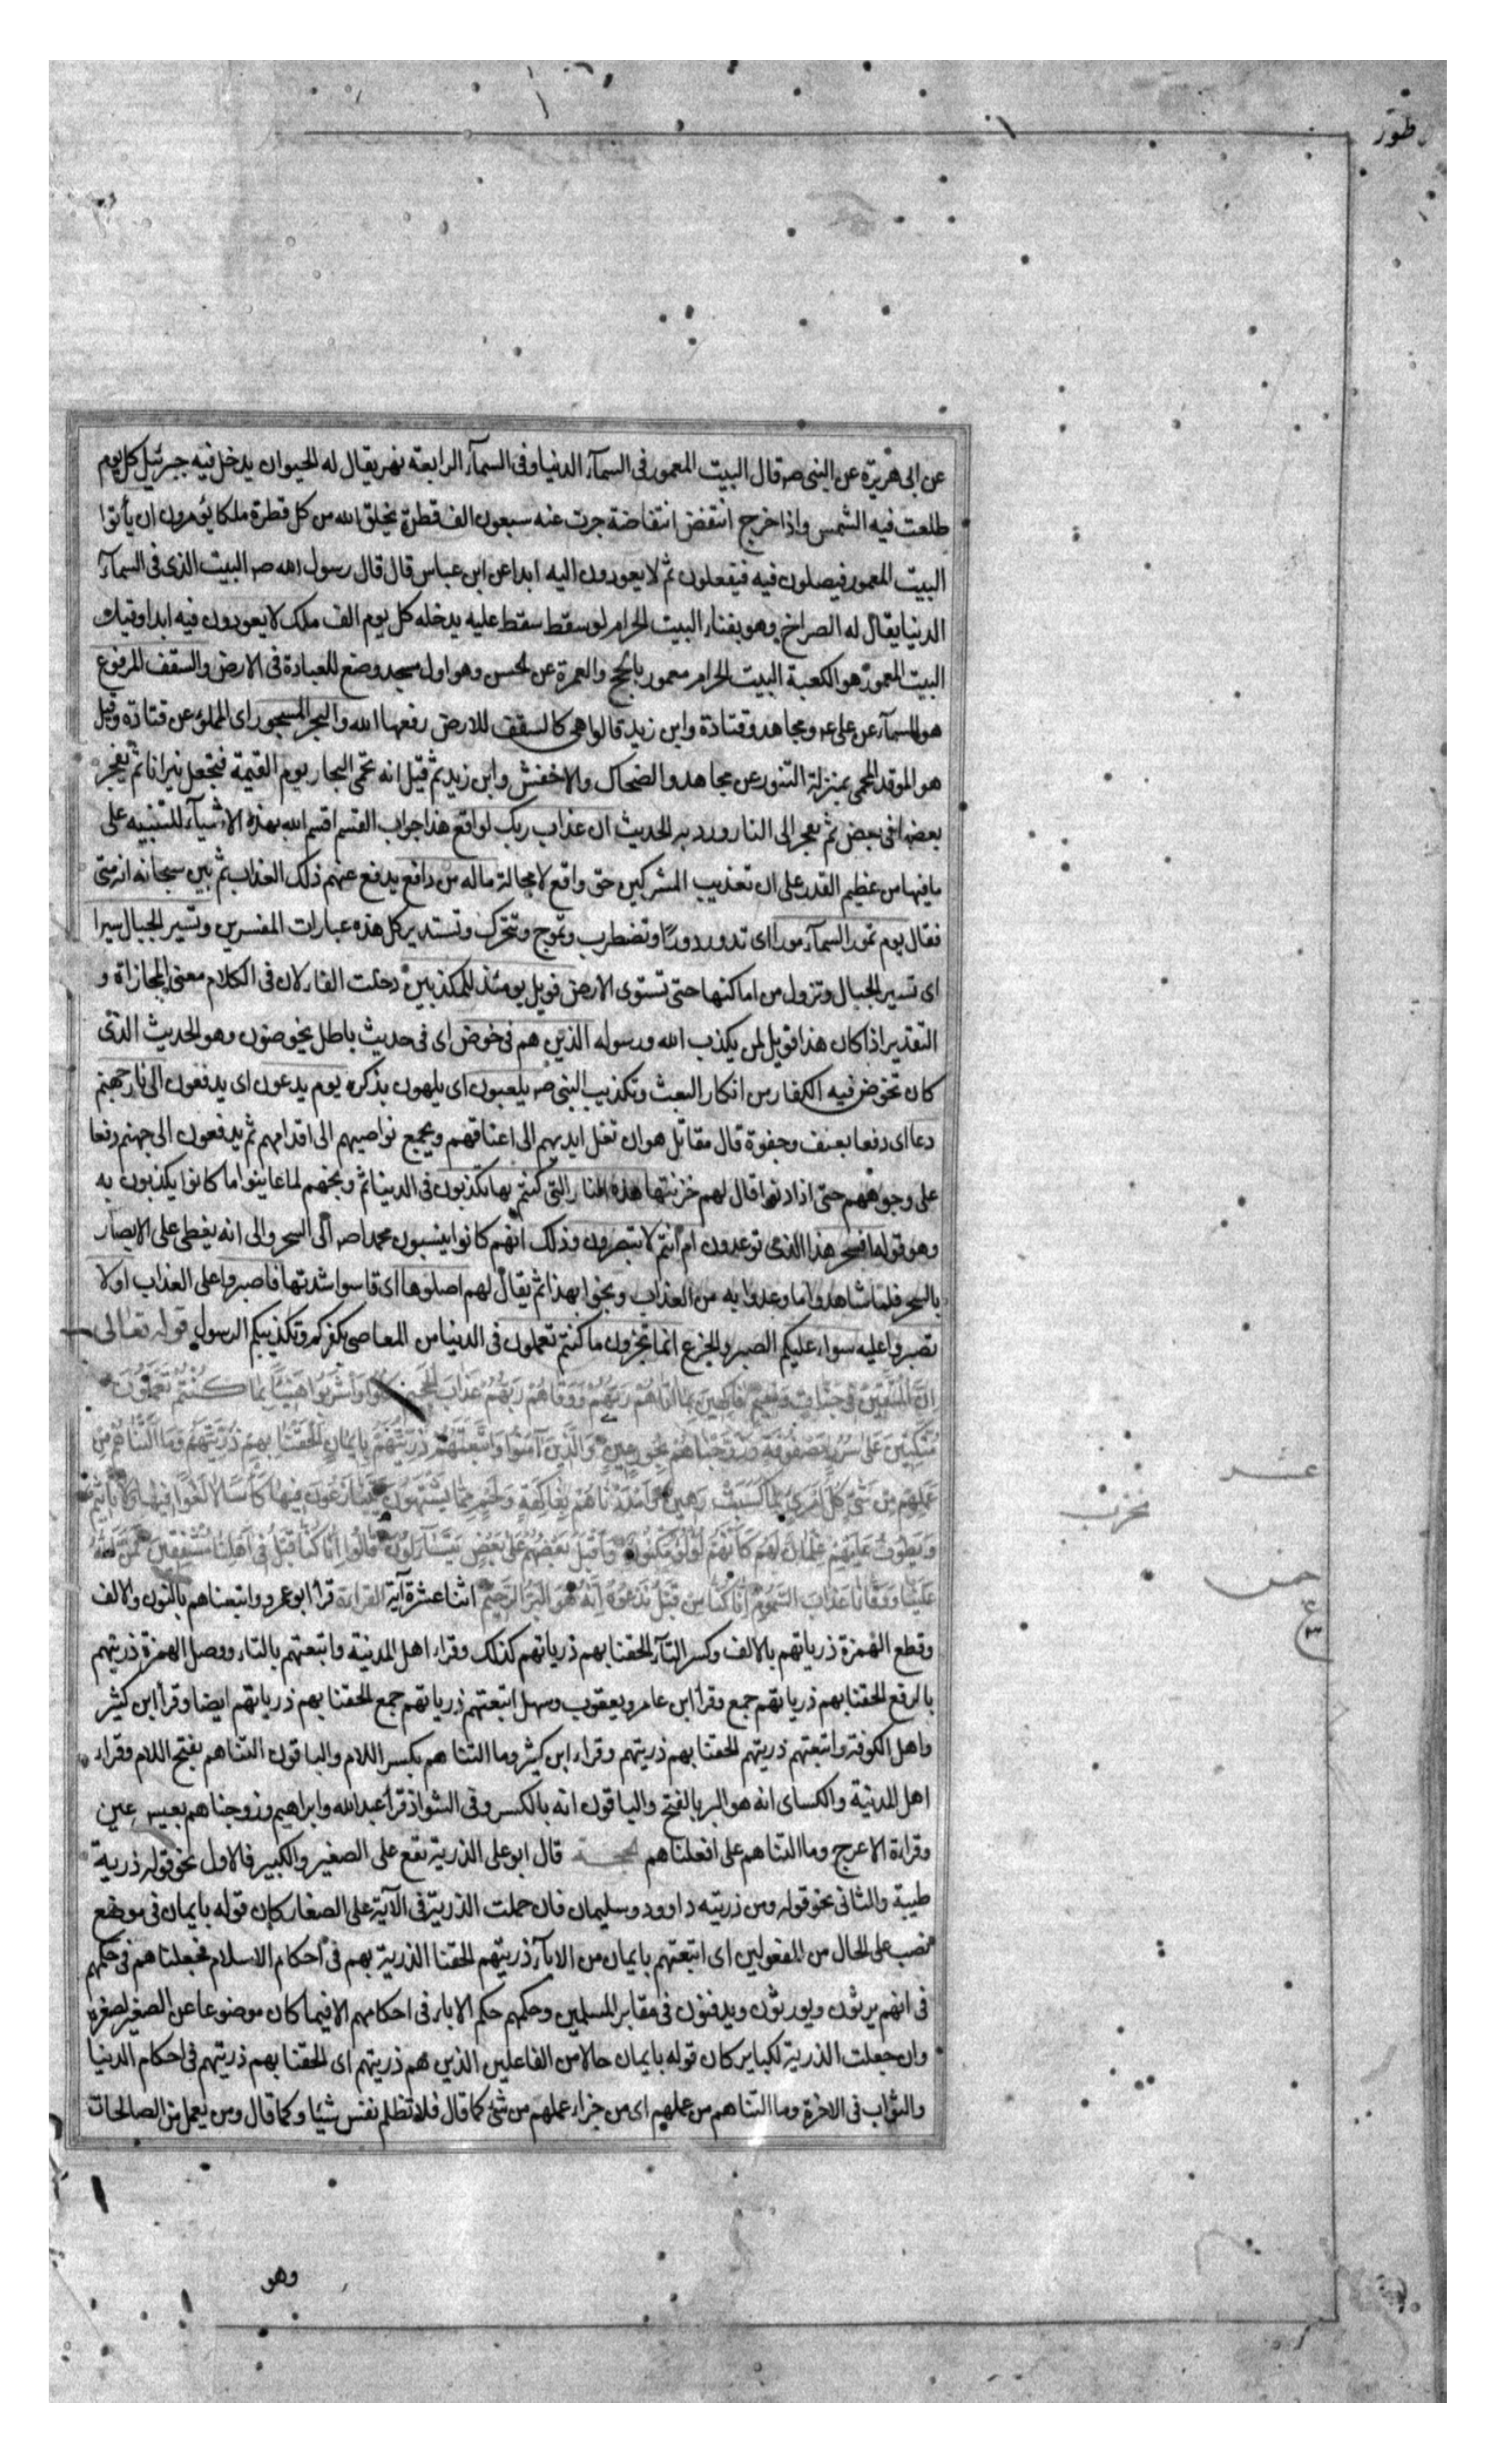 طور
عن ابى هريرة عن النبى صه قال البيت المعمور فى السمآء الدنيا وفى السمآء الرابعة نهر يقال له الحيوان يدخل فيه جبرئيل كل يوم
طلعت فيه الشمس واذا خرج انتفض انتفاضة جرت عنه سبعون الف قطرة يخلق الله من كل قطرة ملكا يؤمرون ان يأتوا
البيت المعمور فيصلون فيه فيفعلون ثم لا يعودون اليه ابدا عن ابن عباس قال قال رسول الله صه البيت الذى فى السمآء
الدنيا يقال له الضراح وهو بفناء البيت الحرام لو سقط سقط عليه يدخله كل يوم الف ملك لا يعودون فيه ابدا وقيل
البيت المعمور هو الكعبة البيت الحرام معمور بالحج والعمرة عن الحسن وهو اول مسجد وضع للعبادة فى الارض والسقف المرفوع
هو السمآء عن على ع ومجاهد وقتادة وابن زيد قالوا هى كالسقف للارض رفعها الله والبحر المسجور اى المملو عن قتادة وقيل
هو الموقد المحمى بمنزلة التنور عن مجاهد والضحاك والاخفش وابن زيد ثم قيل انه تحمى البحار يوم القيمة فتجعل نيرانا ثم يفجر
بعضها فى بعض ثم يفجر الى النار ورد به الحديث ان عذاب ربك لواقع هذا جواب القسم اقسم الله بهذه الاشيآء للتنبيه على
ما فيها من عظيم القدر على ان تعذيب المشركين حق واقع لا محالة ماله من دافع يدفع عنهم ذلك العذاب ثم بين سبحانه انه متى
فقال يوم تمور السمآء مورا اى تدور دورًا وتضطرب وتموج وتتحرك وتستدير كل هذه عبارات المفسرين وتسير الجبال سيرا
اى تسير الجبال وتزول من اماكنها حتى تستوى الارض فويل يومئذ للمكذبين دخلت الفاء لان فى الكلام معنى المجازاة و
التقدير اذا كان هذا فويل لمن يكذب الله ورسوله الذين هم فى خوض اى فى حديث باطل يخوضون وهو الحديث الذى
كان تخوض فيه الكفار من انكار البعث وتكذيب النبى صه يلعبون اى يلهون بذكره يوم يدعون اى يدفعون الى نار جهنم
دعا اى دفعا بعنف وجفوة قال مقاتل هو ان تغل ايديهم الى اعناقهم ويجمع نواصيهم الى اقدامهم ثم يدفعون الى جهنم دفعا
على وجوههم حتى اذا دنوا قال لهم خزنتها هذه النار التى كنتم بها تكذبون فى الدنيا ثم وبخهم لما عاينوا ما كانوا يكذبون به
وهو قوله افسحر هذا الذى توعدون ام انتم لا تبصرون وذلك انهم كانوا ينسبون محمدا صه الى السحر والى انه يغطى على الابصار
بالسحر فلما شاهدوا ما وعدوا به من العذاب وبخوا بهذا ثم يقال لهم اصلوها اى قاسوا شدتها فاصبروا على العذاب او لا
تصبروا عليه سواء عليكم الصبر والجزع انما تجزون ما كنتم تعملون فى الدنيا من المعاصى بكفركم وتكذيبكم الرسول قوله تعالى
اِنَّ الْمُتَّقِينَ فى جَنَّاتٍ وَنَعِيمٍ فَاكِهِينَ بِمَا آتَاهُمْ رَبُّهُمْ وَوَقَاهُمْ رَبُّهُمْ عَذَابَ الْجَحِيمِ كُلُوا وَاشْرَبُوا هَنِيئًا بِمَا كُنْتُمْ تَعْمَلُونَ
مُتَّكِئِينَ عَلَى سُرُرٍ مَصْفُوفَةٍ وَزَوَّجْنَاهُمْ بِحُورٍ عِينٍ وَالَّذِينَ آمَنُوا وَاتَّبَعَتْهُمْ ذُرِّيَّتُهُمْ بِاِيمَانٍ اَلْحَقْنَا بِهِمْ ذُرِّيَّتَهُمْ وَمَا اَلَتْنَاهُمْ مِنْ
عَمَلِهِمْ مِنْ شَىْءٍ كُلُّ امْرِئٍ بِمَا كَسَبَ رَهِينٌ وَاَمْدَدْنَاهُمْ بِفَاكِهَةٍ وَلَحْمٍ مِمَّا يَشْتَهُونَ يَتَنَازَعُونَ فِيهَا كَأْسًا لَا لَغْوٌ فِيهَا وَلَا تَأْثِيمٌ
وَيَطُوفُ عَلَيْهِمْ غِلْمَانٌ لَهُمْ كَاَنَّهُمْ لُؤْلُؤٌ مَكْنُونٌ وَاَقْبَلَ بَعْضُهُمْ عَلَى بَعْضٍ يَتَسَآءَلُونَ قَالُوا اِنَّا كُنَّا قَبْلُ فِى اَهْلِنَا مُشْفِقِينَ فَمَنَّ اللهُ
عَلَيْنَا وَوَقَانَا عَذَابَ السَّمُومِ اِنَّا كُنَّا مِنْ قَبْلُ نَدْعُوهُ اِنَّهُ هُوَ الْبَرُّ الرَّحِيمُ اثنا عشرة آية القراءة قرأ ابو عمرو واتبعناهم بالنون والالف
وقطع الهمزة ذرياتهم بالالف وكسر التآء الحقنا بهم ذرياتهم كذلك وقراء اهل المدينة واتبعتهم بالتاء ووصل الهمزة ذريتهم
بالرفع الحقنا بهم ذرياتهم جمع وقرأ ابن عامر ويعقوب وسهل اتبعتهم ذرياتهم جمع الحقنا بهم ذرياتهم ايضا وقرأ ابن كثير
واهل الكوفة واتبعتهم ذريتهم الحقنا بهم ذريتهم وقراء ابن كثير وما التناهم بكسر اللام والباقون التناهم بفتح اللام وقراء
اهل المدينة والكساى انه هو البر بالفتح والباقون انه بالكسر وفى الشواذ قرأ عبد الله وابراهيم وزوجناهم بعيس عين
وقراءة الاعرج وما التناهم على افعلناهم الحجة قال ابو على الذرية تقع على الصغير والكبير فالاول نحو قوله ذرية
طيبة والثانى نحو قوله ومن ذريته داوود وسليمان فان حملت الذرية فى الآية على الصغار كان قوله بايمان فى موضع
نصب على الحال من المفعولين اى اتبعتهم بايمان من الابآء ذريتهم الحقنا الذرية بهم فى احكام الاسلام فجعلناهم فى حكمهم
فى انهم يرثون ويورثون ويدفنون فى مقابر المسلمين وحكمهم حكم الاباء فى احكامهم الا فيما كان موضوعا عن الصغير لصغره
وان جعلت الذرية لكبار كان قوله بايمان حالا من الفاعلين الذين هم ذريتهم اى الحقنا بهم ذريتهم فى احكام الدنيا
والثواب فى الاخرة وما التناهم من عملهم اى من جزاء عملهم من شئ كما قال فلا تظلم نفس شيئا وكما قال ومن يعمل من الصالحات
عشر
حزب
خمس
ع
وهو